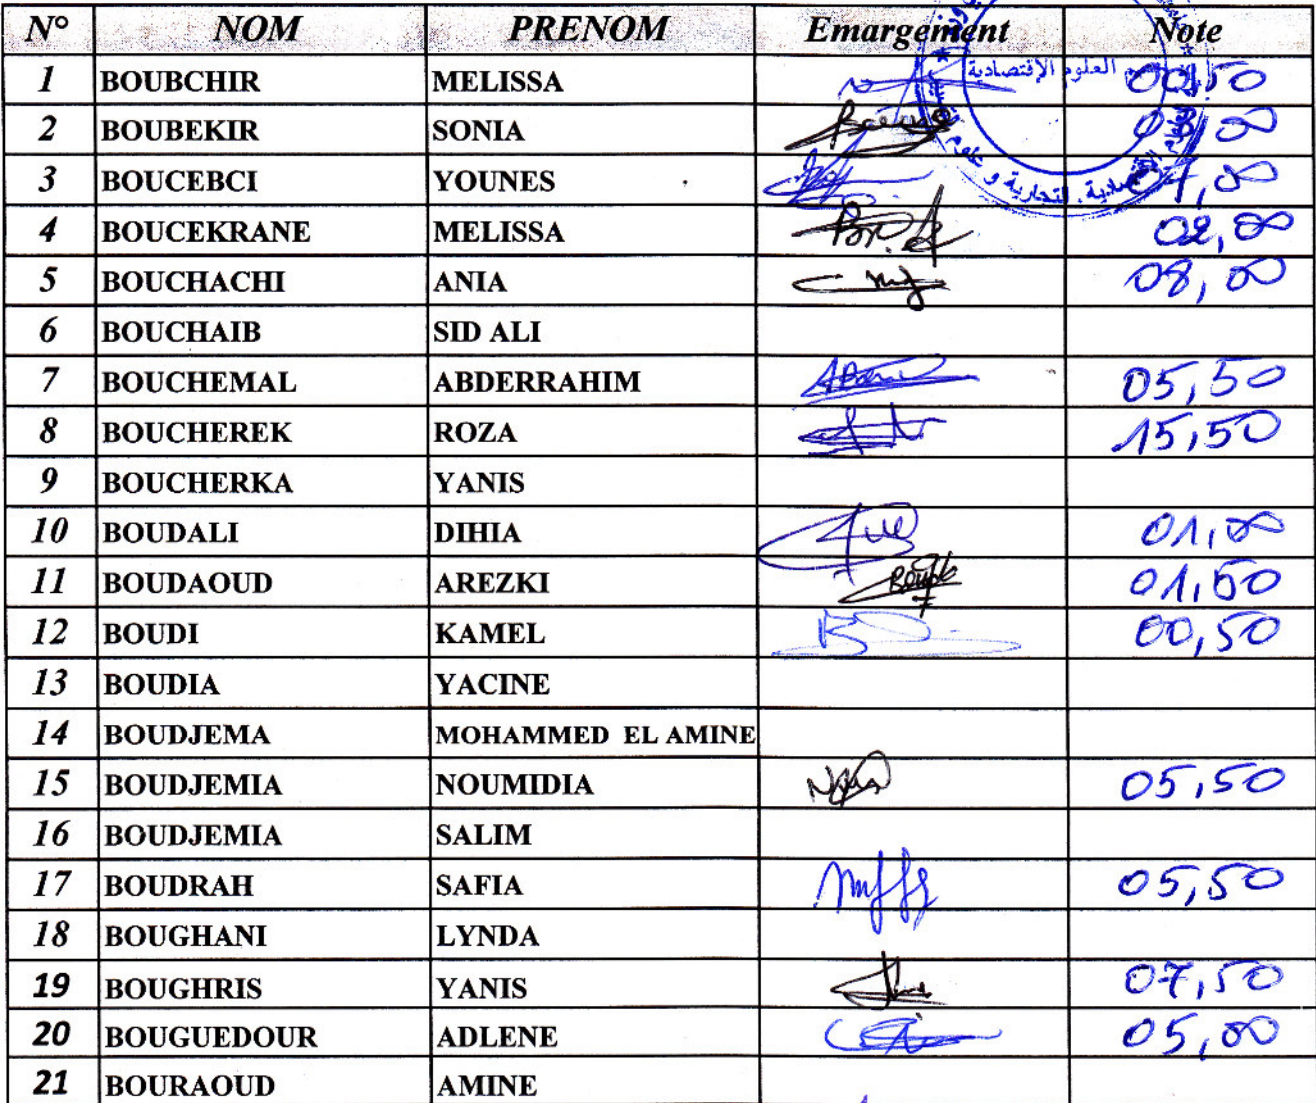 N° NOM PRENOM Emargement Note
العلوم الإقتصادية
1 BOUBCHIR MELISSA 00,50
2 BOUBEKIR SONIA
3 BOUCEBCI YOUNES
التجارية و علوم
4 BOUCEKRANE MELISSA 02,00
5 BOUCHACHI ANIA 08,00
6 BOUCHAIB SID ALI
7 BOUCHEMAL ABDERRAHIM 05,50
8 BOUCHEREK ROZA 15,50
9 BOUCHERKA YANIS
10 BOUDALI DIHIA 01,00
11 BOUDAOUD AREZKI 01,50
12 BOUDI KAMEL 00,50
13 BOUDIA YACINE
14 BOUDJEMA MOHAMMED EL AMINE
15 BOUDJEMIA NOUMIDIA 05,50
16 BOUDJEMIA SALIM
17 BOUDRAH SAFIA 05,50
18 BOUGHANI LYNDA
19 BOUGHRIS YANIS 07,50
20 BOUGUEDOUR ADLENE 05,00
21 BOURAOUD AMINE